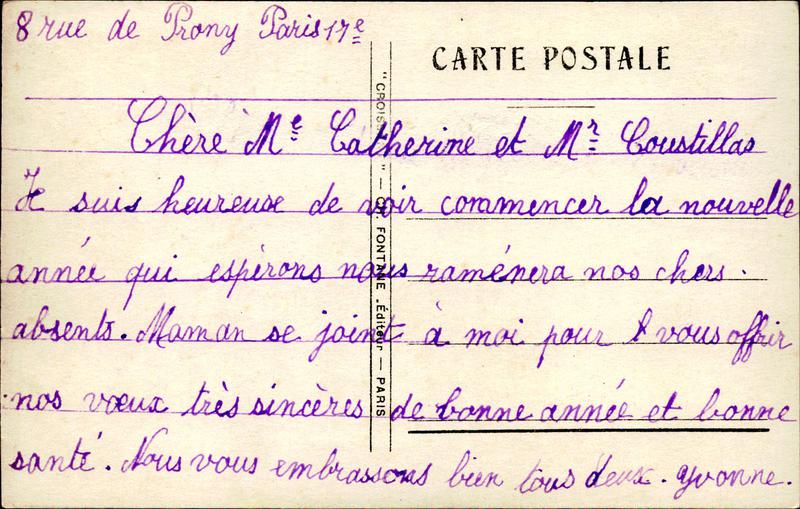 8 rue de Prony Paris 17e
CARTE POSTALE
Chère Me Catherine et Mr Coustillas
Je suis heureuse de voir commencer la nouvelle
année qui espérons nous raménera nos chers
absents. Maman se joint à moi pour vous offrir
nos vœux très sincères de bonne année et bonne
santé. Nous vous embrassons bien tous deux. Yvonne.
FONTANE, Éditeur — PARIS